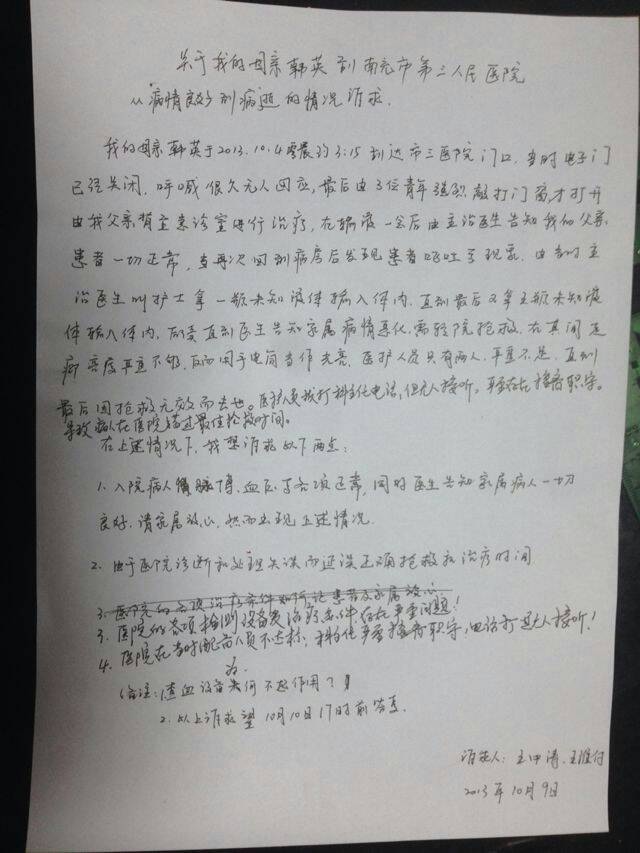 关于我的母亲韩英到南充市第三人民医院
从病情良好到病逝的情况诉求.
我的母亲韩英于2013.10.4凌晨约3:15到达市三医院门口,当时电子门
已经关闭,呼喊很久无人回应,最后由3位青年强烈敲打门窗,才打开
由我父亲背至急诊室进行治疗,在输液一会后由主治医生告知我的父亲
患者一切正常,当再次回到病房后发现患者呕吐等现象,由当时主
治医生叫护士拿一瓶未知液体输入体内,直到最后又拿三瓶未知液
体输入体内,后委直到医生告知家属病情恶化,需转院抢救,在其间走
廊亮度严重不够,反而用手电筒当作光亮,医护人员只有两人,严重不足,直到
最后因抢救无效而去世。医护人员我打科主任电话,但无人接听。严重存在擅离职守。
导致病人在医院错过最佳抢救时间。
在上述情况下,我想诉求以下两点:
1.入院病人脉膊,血压等各项正常,同时医生告知家属病人一切
良好,请家属放心,然而出现上述情况.
2.由于医院诊断和处理失误而延误正确抢救和治疗时间
3.医院的各项治疗条件如何让患者及家属放心
3.医院的各项检测设备及治疗条件存在严重问题!
4.医院在当时配备人员不达标,科主任严重擅离职守,电话打过无人接听!
(备注:1查血设备为何不起作用?
2.以上诉求望10月10日17时前答复.
诉求人:王中涛.王维付
2013年10月9日